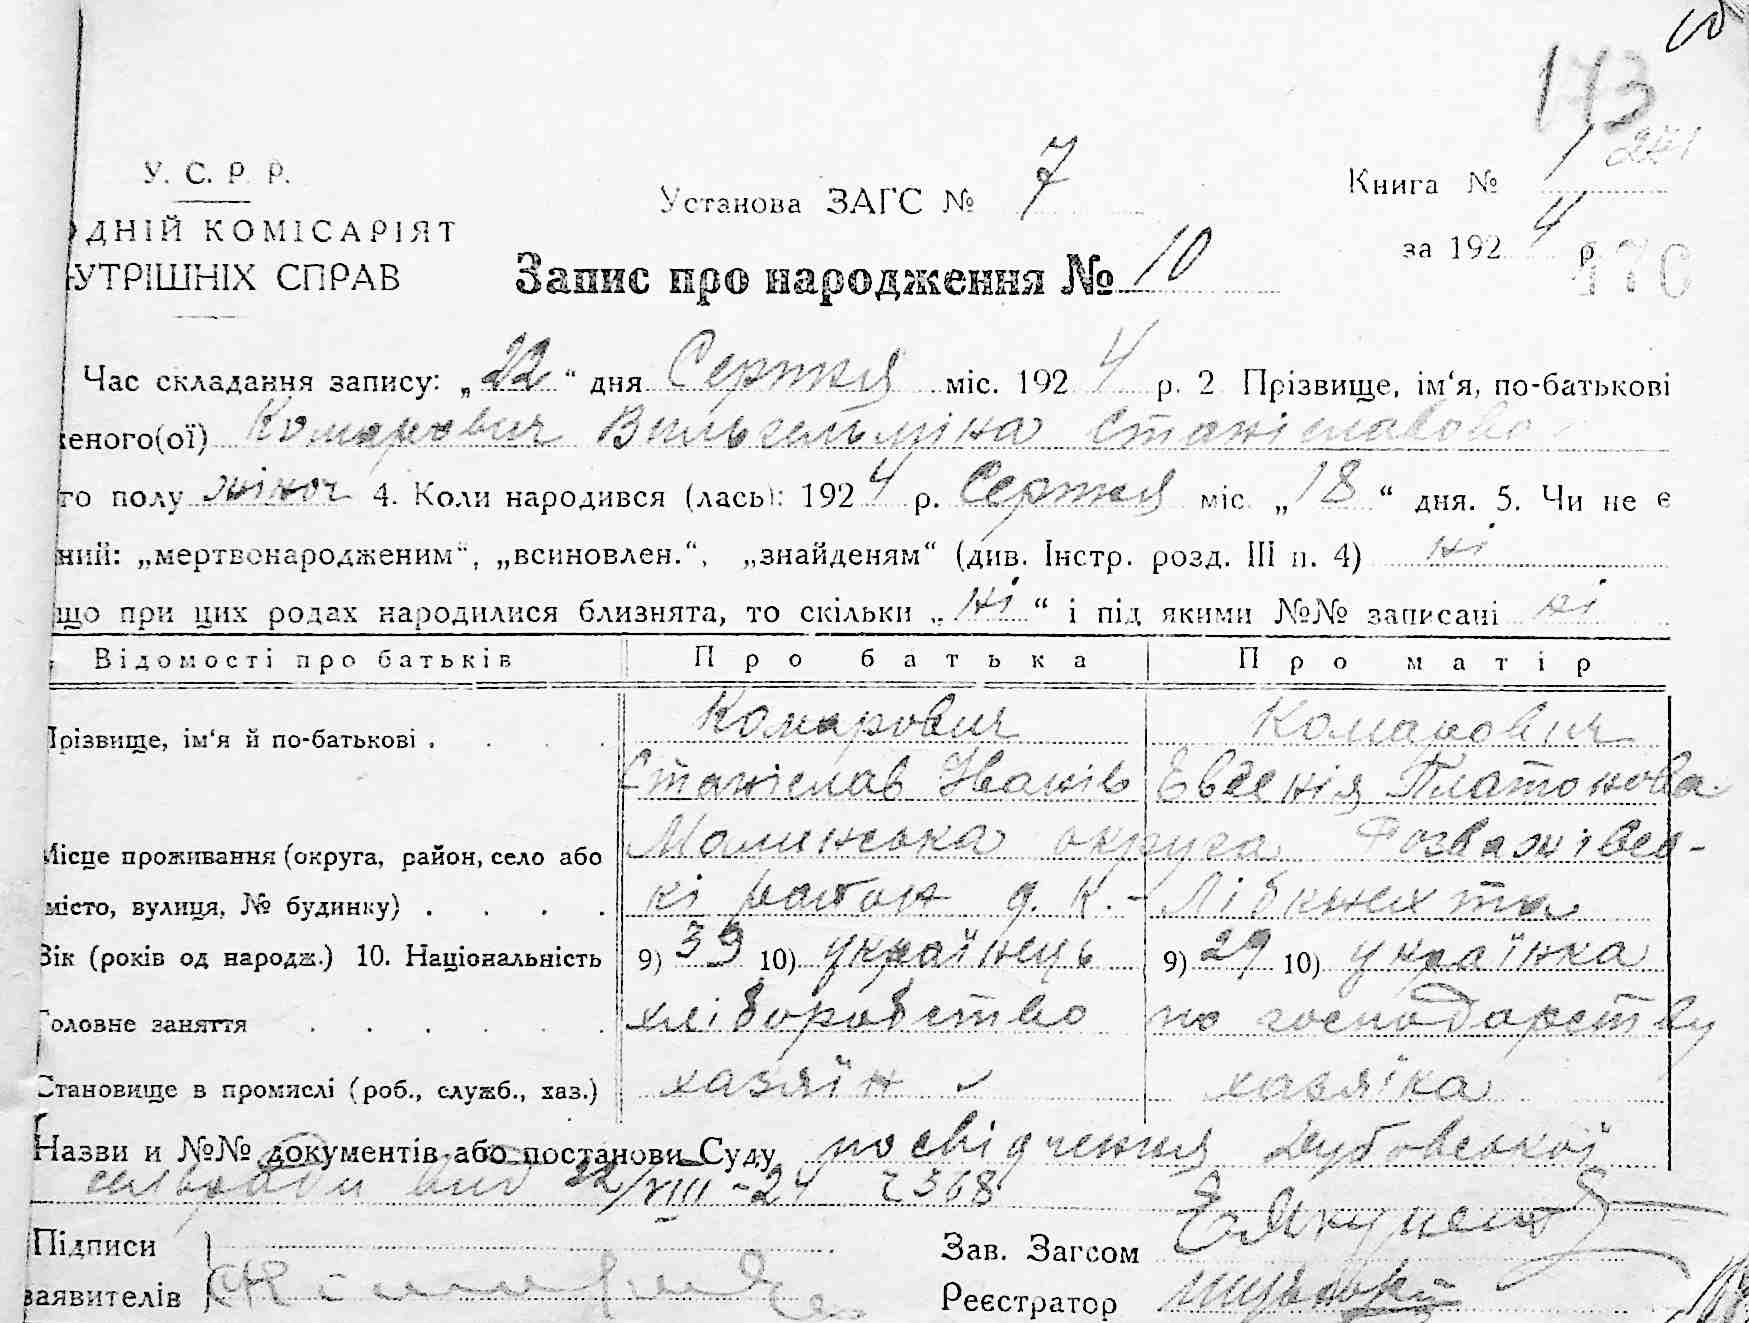 173
У. С. Р. Р. Установа ЗАГС № 7 Книга № 1
ДНІЙ КОМІСАРІЯТ за 1924 р.
УТРІШНІХ СПРАВ Запис про народження № 10
170
Час складання запису: „22“ дня Серпня міс. 1924 р. 2 Прізвище, ім‘я, по-батькові
еного(ої) Комарович Вильгельміна Станіславова
го полу жіноч 4. Коли народився (лась): 1924 р. Серпня міс. „18“ дня. 5. Чи не є
ний: „мертвонародженим“, „всиновлен.“, „знайденям“ (див. Інстр. розд. III п. 4) ні
що при цих родах народилися близнята, то скільки „ні“ і під якими №№ записані ні
Відомості про батьків Про батька Про матір
Прізвище, ім‘я й по-батькові . . . . Комарович Комарович
Станіслав Іванів Евгенія Платонова
Місце проживання (округа, район, село або Малинська округа Розважівсь-
місто, вулиця, № будинку) . . . . кі район д. К.-Лібкнехта
Вік (років од народж.) 10. Національність 9) 39 10) українець 9) 29 10) українка
Головне заняття . . . . . . хліборобство по господарству
Становище в промислі (роб., служб., хаз.) хазяїн хазяїка
Назви и №№ документів або постанови Суду посвідчення Дубовської
сельради від 22/VIII-24 368
Підписи Зав. Загсом
заявителів Реєстратор